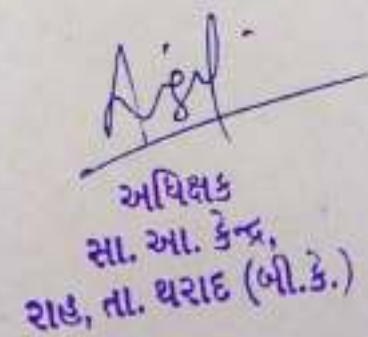 અધિક્ષક
સા. આ. કેન્દ્ર,
રાહ, તા. થરાદ (બી.કે.)